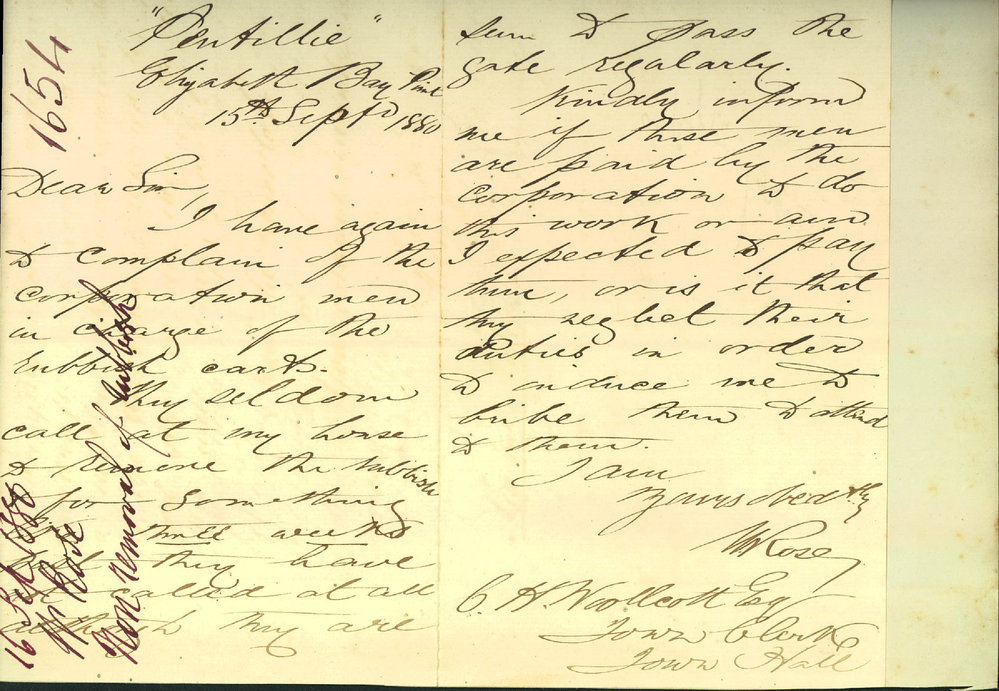 "Pentillie"
Elizabeth Bay Point
15th Septr 1880
Dear Sir,
I have again
to complain of the
corporation men
in charge of the
rubbish carts.
They seldom
call at my house
to remove the rubbish
& for something
like three weeks
past they have
not called at all
although they are
seen to pass the
gate regularly.
Kindly inform
me if these men
are paid by the
corporation to do
this work or am
I expected to pay
them, or is it that
they neglect their
duties in order
to induce me to
bribe them to attend
to them.
I am
Yours obedtly
W Rose
C. H. Woollcott Esq
Town Clerk
Town Hall
1654
16 Sept 1880
W Rose
Non removal of rubbish